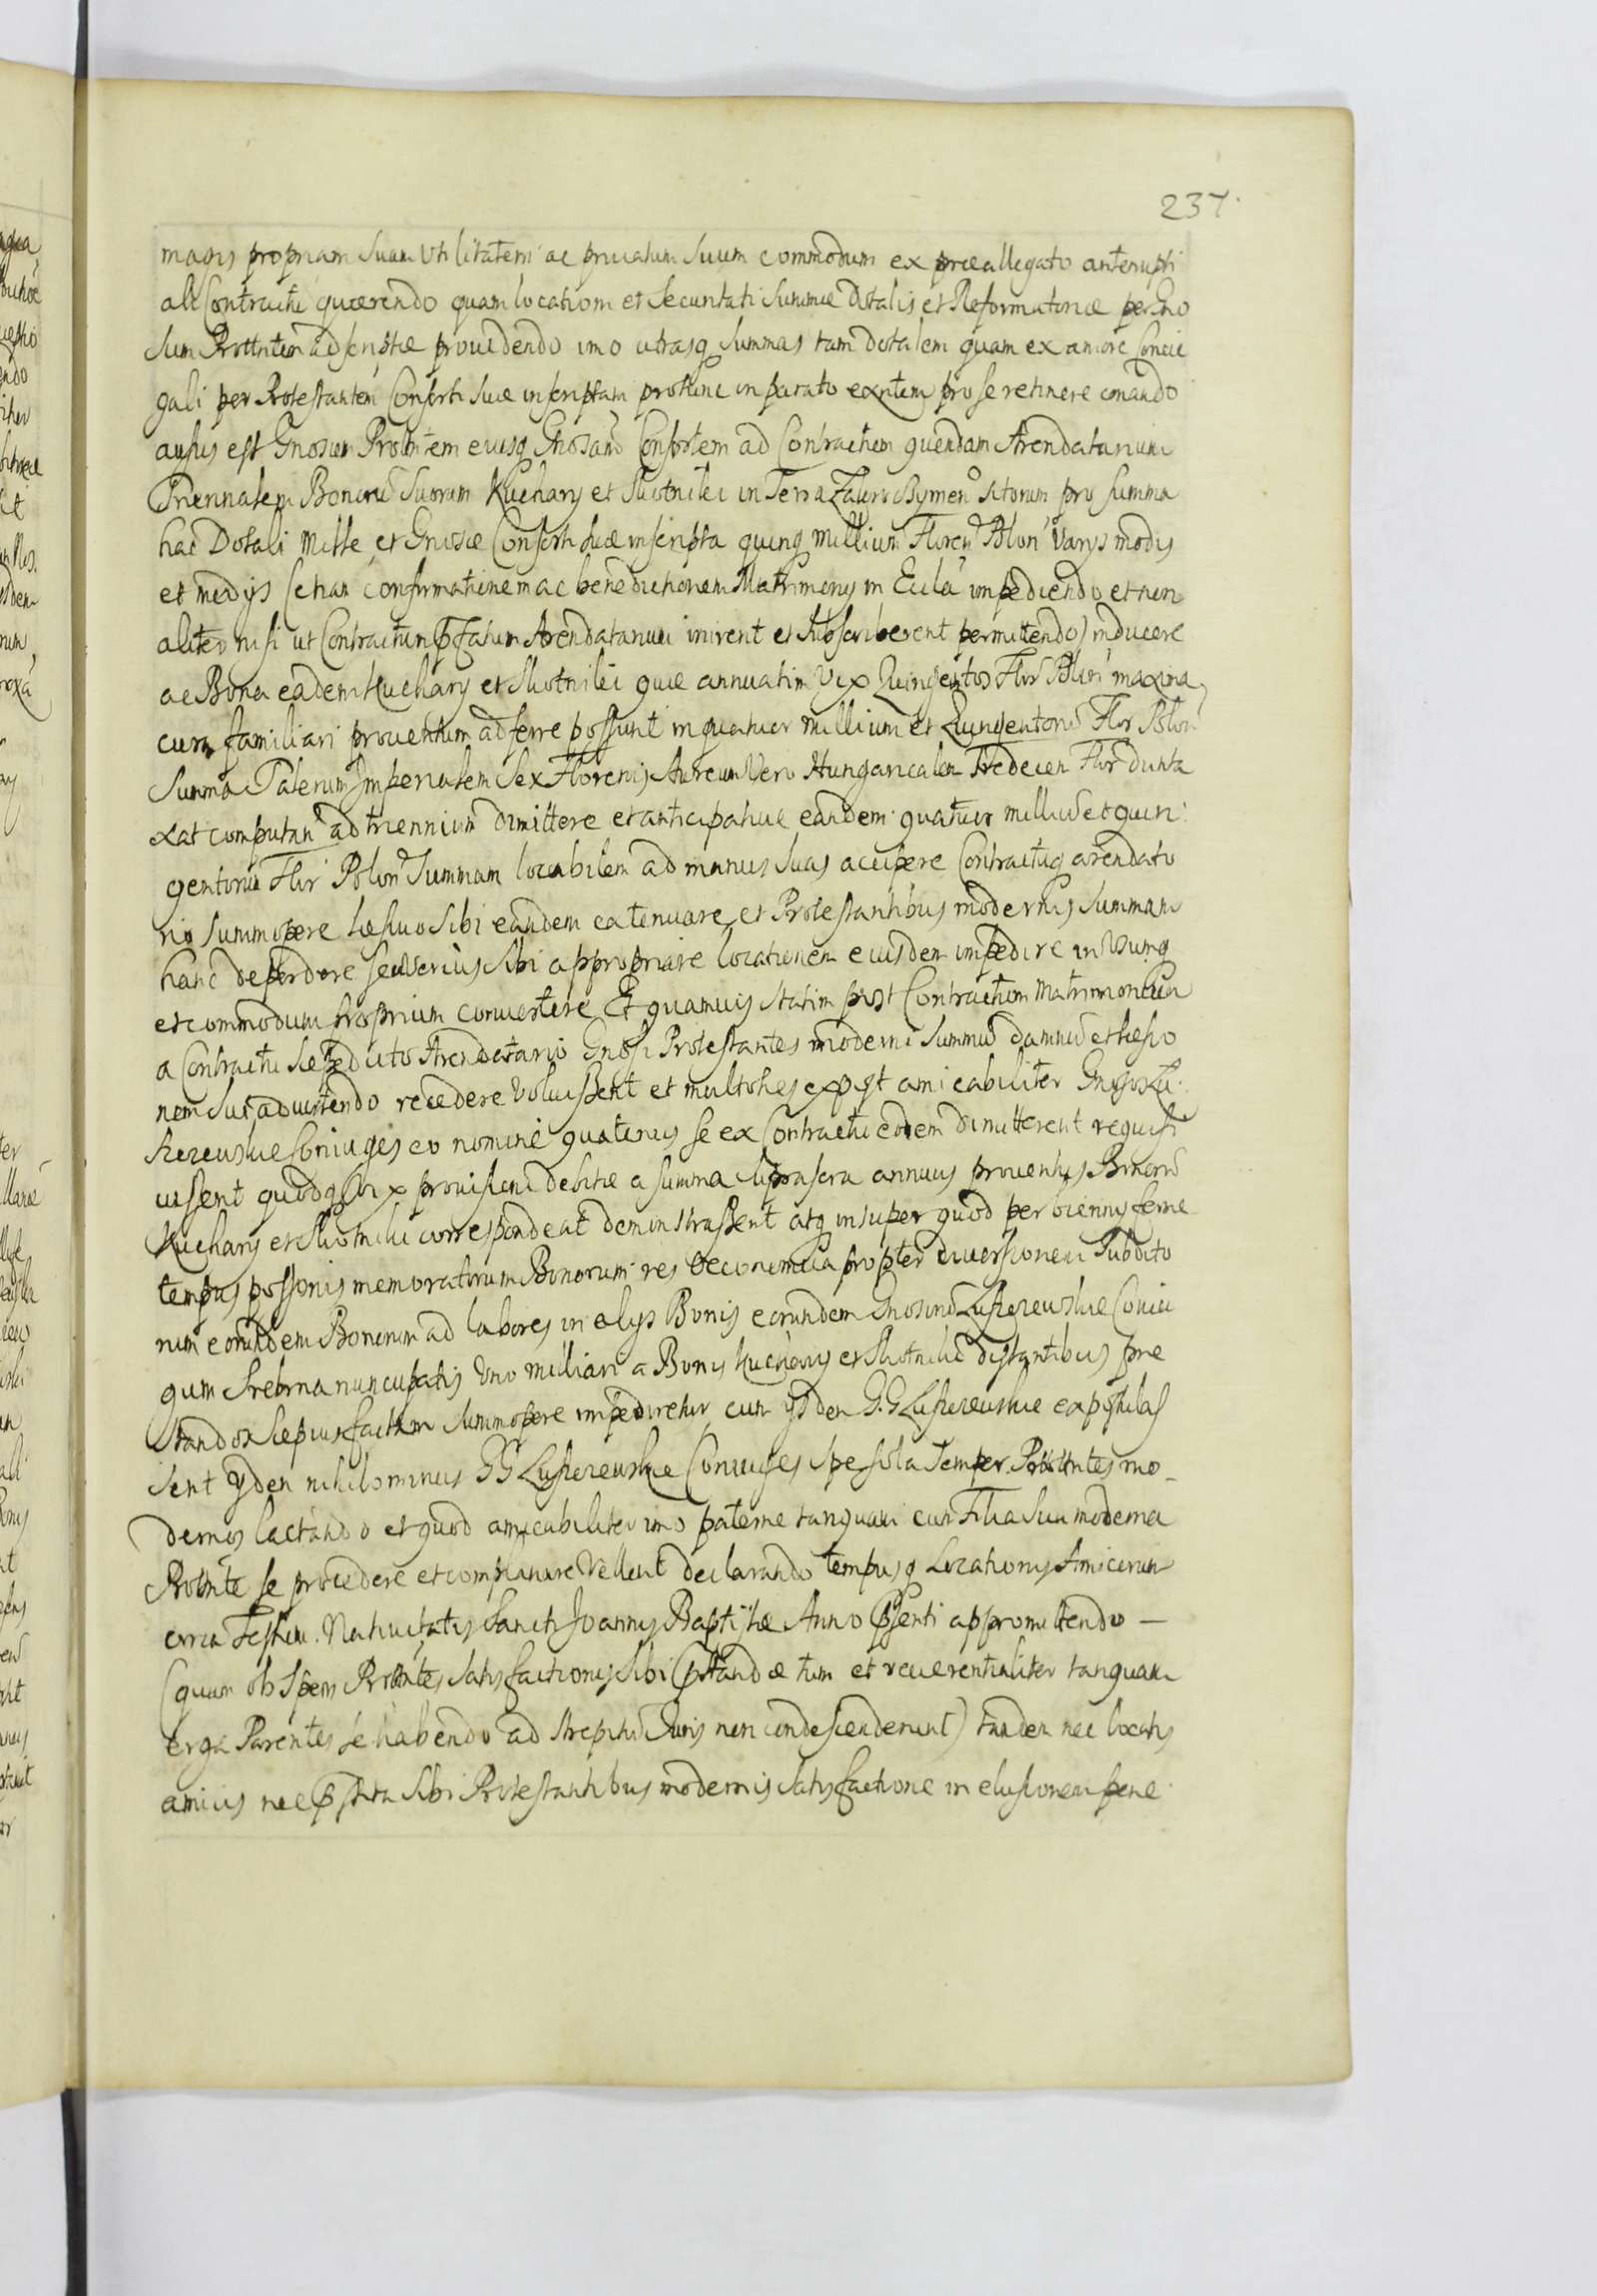 237.
magis propriam suam Utilitatem ac privatum suum commodum ex præallegato antenupti
ali Contractu quærendo quam locationi et securitati summæ Dotalis et Reformatoriæ per Gno
sum Prottntem adscriptæ providendo imo utrasq summas tam dotalem quam ex amore Coniu
gali per Protestantem Consorti suæ inscriptam protunc in parato exntem pro se retinere conando
ausus est Gnosum Prottntem eiusq Gnosam Consortem ad Contractum quendam Arendatarium
Triennalem Bonorũ Suorum Kuchary et Skotniki in Terra Zakroczymen sitorum pro summa
hac Dotali Mille et Gnosæ Consorti suæ inscripta quinq Millium Floren Polon Varys modis
et medijs (etiam confirmationem ac benedictionem Matrimonij in Eccla impediendo et non
aliter nisi ut Contractum pfatum Arendatarium inirent et subscriberent permittendo) inducere
ac Bona eadem Kuchary et Skotniki quæ annuatim Vix Quingentos Flor Polon maxima
cum familiari proventum adferre possunt in quatuor millium et Quingentorũ Flor Polon
Summa Talerum Imperialem Sex Florenis Aureum Vero Hungaricalem Tredecem Flor dunta
xat computan ad triennium dimittere et anticipative eandem quatuor milliũ et quin
gentorum Flor Polon Summam locabilem ad manus suas accipere Contractuq arendato
rio summopere læsivo sibi eandem extenuare et Protestantibus modernis Summam
hanc deperdere seu Verius sibi appropriare locationem eiusdem impedire in Usumq
et commodum proprium convertere Et quamvis statim post Contractum Matrimonium
a Contractu se ducto Arendatario Gnosi Protestantes moderni Summũ damnũ et læsio
nem sui advertendo recedere Voluissent et multoties expost amicabiliter Gnosos Lu
szczewskie Coniuges eo nomine quatenus se ex Contractu eodem dimitterent requisi
vissent quodq Vix provisioni debitæ a summa suprascra annuus proventus Bonorũ
Kuchary et Skotniki correspondeat demonstrassent atq insuper quod per biennij ferme
tempus possonis memoratorum Bonorum res Oeconomica propter diversionem Subdito
rum eorundem Bonorum ad labores in alijs Bonis eorundem Gnosorũ Luszczewskie Coniu
gum Srebrna nuncupatis Uno milliari a Bonis Kuchary et Skotniki distantibus præ
standos sæpius factam summopere impediretur cum ijsdem G.G Luszczewskie expostulas
sent ijdem nihilominus GG Luszczewskie Coniuges spe sola semper Prottntes mo-
dernos lactando et quod amicabiliter imo paterne tanquam cum Filia sua moderna
Prottnte se procedere et complanare Vellent declarando tempusq Locationis Amicorum
circa Festum Nativitatis Sancti Joannis Baptistæ Anno pssenti appromittendo —
(quam ob Spem Prottntes satisfactionis sibi pstandæ tum et reverentialiter tanquam
erga Parentes se habendo ad strepitũ Juris non condescenderunt) tandem nec locatis
amicis nec pstita sibi Protestantibus modernis satisfactione in elusionem pene